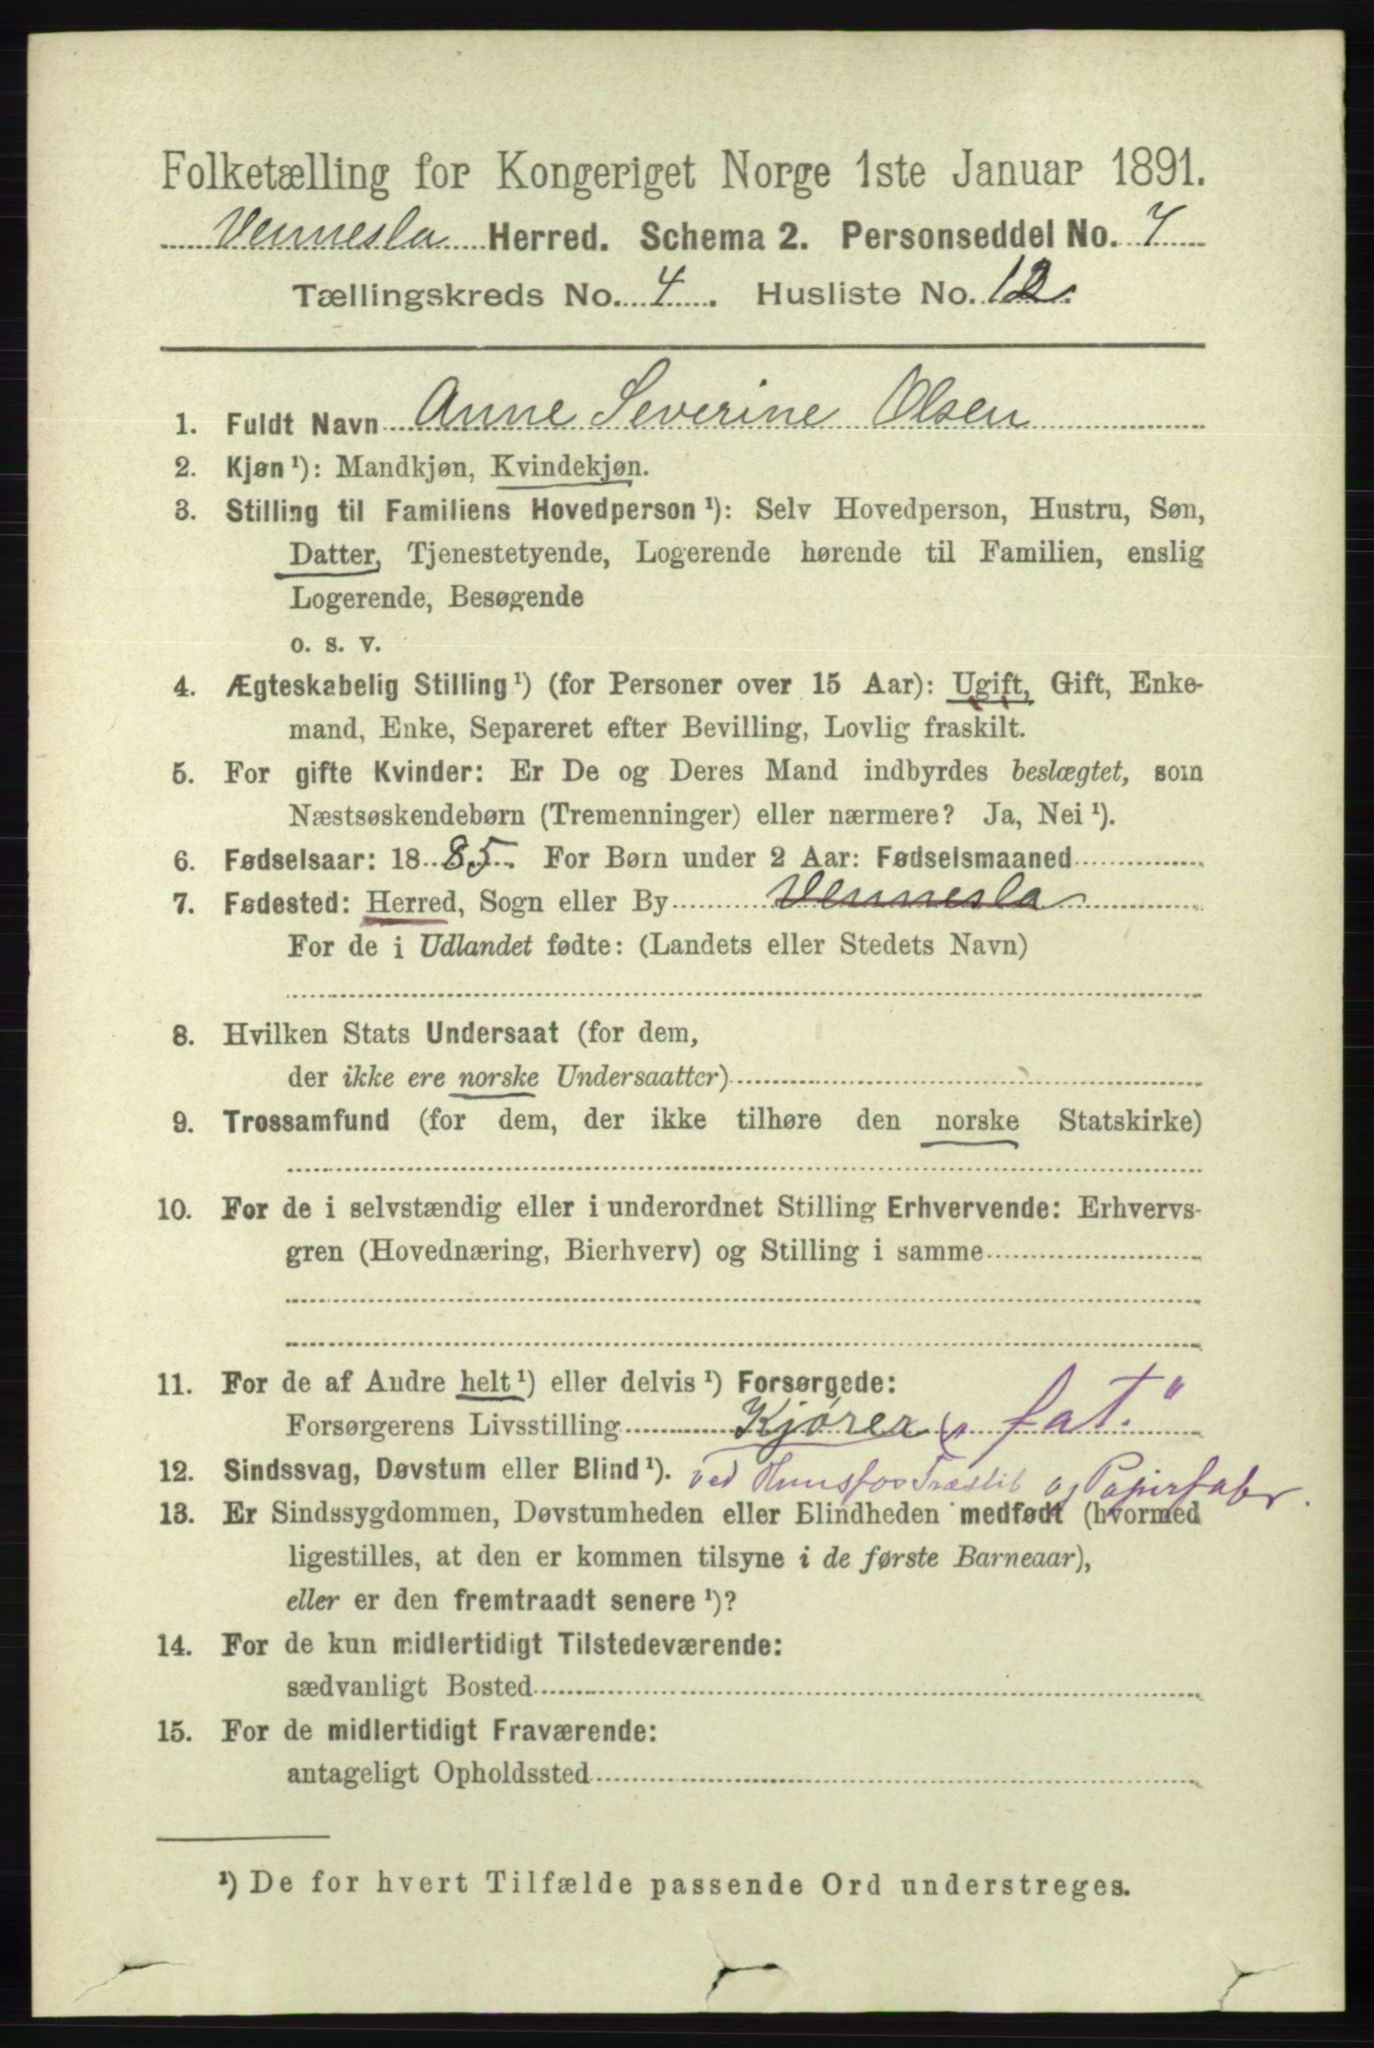 Folketælling for Kongeriget Norge 1ste Januar 1891.
Vennesla Herred. Schema 2. Personseddel No. 7
Tællingskreds No. 4. Husliste No. 12.
1. Fuldt Navn Anne Severine Olsen
2. Kjøn ¹): Mandkjøn, Kvindekjøn.
3. Stilling til Familiens Hovedperson ¹): Selv Hovedperson, Hustru, Søn,
Datter, Tjenestetyende, Logerende hørende til Familien, enslig
Logerende, Besøgende
o. s. v.
4. Ægteskabelig Stilling ¹) (for Personer over 15 Aar): Ugift, Gift, Enke-
mand, Enke, Separeret efter Bevilling, Lovlig fraskilt.
5. For gifte Kvinder: Er De og Deres Mand indbyrdes beslægtet, som
Næstsøskendebørn (Tremenninger) eller nærmere? Ja, Nei ¹).
6. Fødselsaar: 1885. For Børn under 2 Aar: Fødselsmaaned
7. Fødested: Herred, Sogn eller By Vennesla
For de i Udlandet fødte: (Landets eller Stedets Navn)
8. Hvilken Stats Undersaat (for dem,
der ikke ere norske Undersaatter)
9. Trossamfund (for dem, der ikke tilhøre den norske Statskirke)
10. For de i selvstændig eller i underordnet Stilling Erhvervende: Erhvervs-
gren (Hovednæring, Bierhverv) og Stilling i samme
11. For de af Andre helt ¹) eller delvis ¹) Forsørgede:
Forsørgerens Livsstilling Kjører " fat. "
12. Sindssvag, Døvstum eller Blind ¹). ved Hunsfos Træslib og Papirfabr.
13. Er Sindssygdommen, Døvstumheden eller Blindheden medfødt (hvormed
ligestilles, at den er kommen tilsyne i de første Barneaar),
eller er den fremtraadt senere ¹)?
14. For de kun midlertidigt Tilstedeværende:
sædvanligt Bosted
15. For de midlertidigt Fraværende:
antageligt Opholdssted
¹) De for hvert Tilfælde passende Ord understreges.